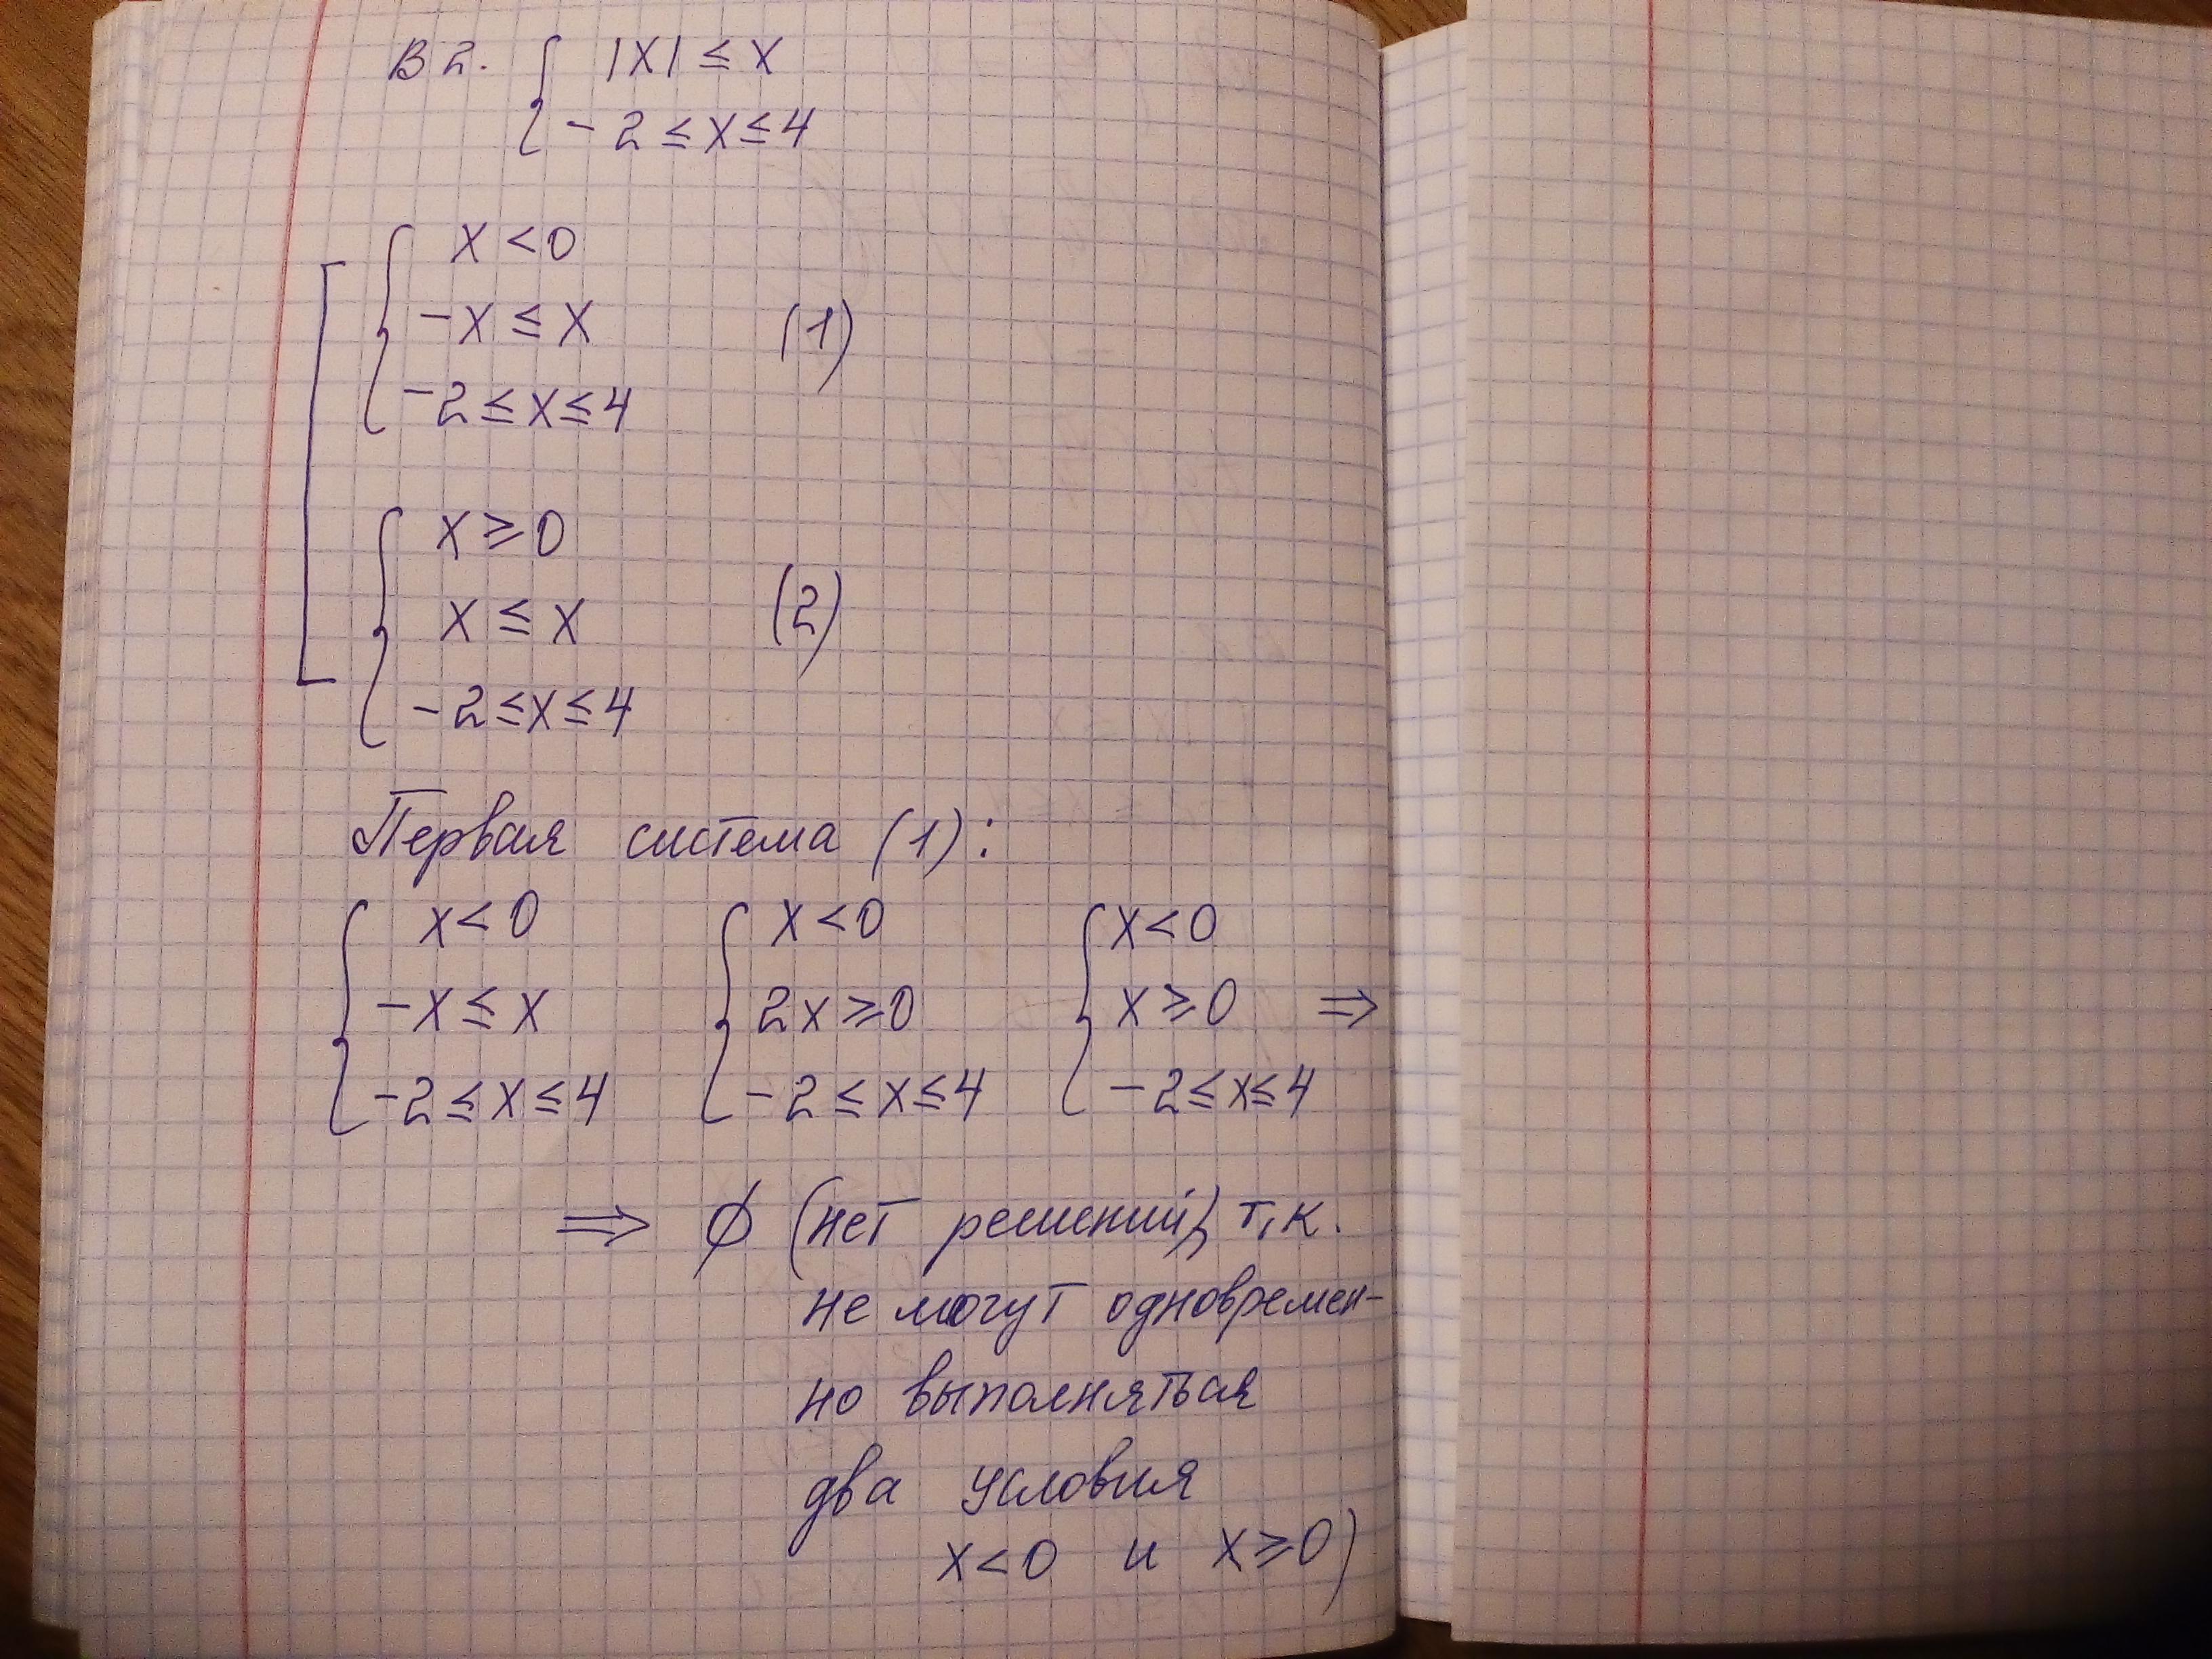 В 2. { |x| ≤ x
-2 ≤ x ≤ 4
x < 0
-x ≤ x (1)
-2 ≤ x ≤ 4
x ≥ 0
x ≤ x (2)
-2 ≤ x ≤ 4
Первая система (1):
x < 0 x < 0 x < 0
-x ≤ x 2x ≥ 0 x ≥ 0 ⇒
-2 ≤ x ≤ 4 -2 ≤ x ≤ 4 -2 ≤ x ≤ 4
⇒ ∅ (нет решений), т.к.
не могут одновремен-
но выполняться
два условия
x < 0 и x ≥ 0)